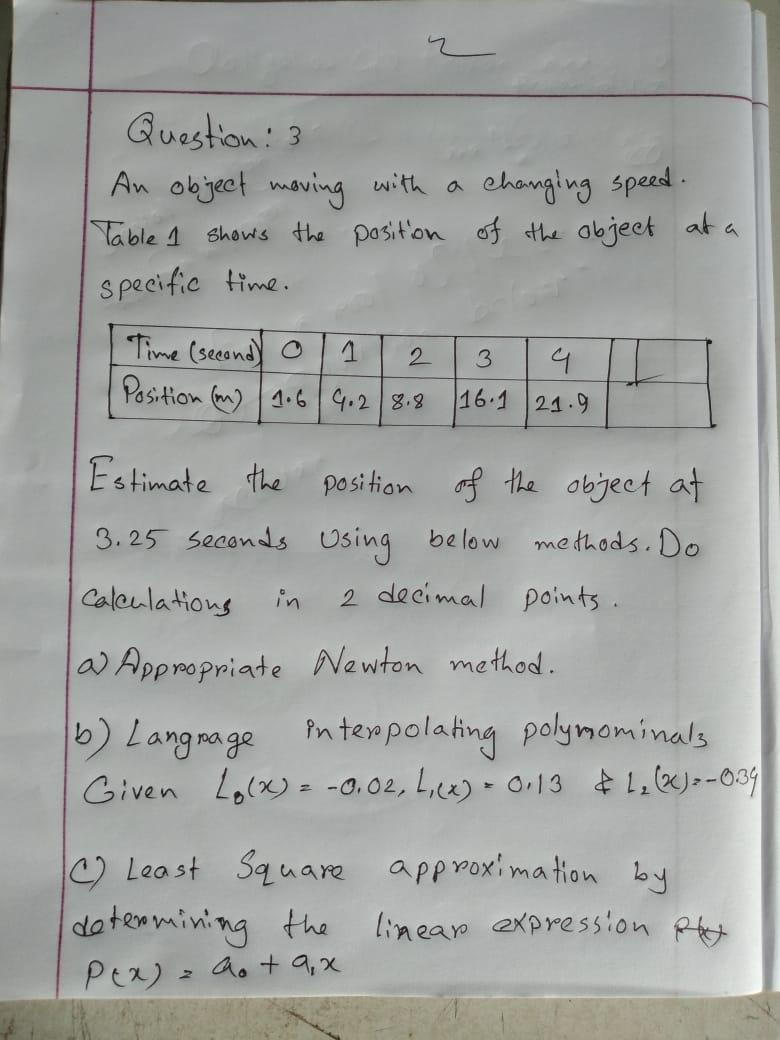 2
Question: 3
An object moving with a changing speed.
Table 1 shows the position of the object at a
specific time.
Time (second) 0 1 2 3 4
Position (m) 1.6 4.2 8.8 16.1 21.9
Estimate the position of the object at
3.25 seconds Using below methods. Do
Calculations in 2 decimal points.
a) Appropriate Newton method.
b) Langrage interpolating polynominals
Given L₀(x) = -0.02, L₁(x) = 0.13 & L₂(x) = -0.34
C) Least Square approximation by
determining the linear expression
P(x) = a₀ + a₁x